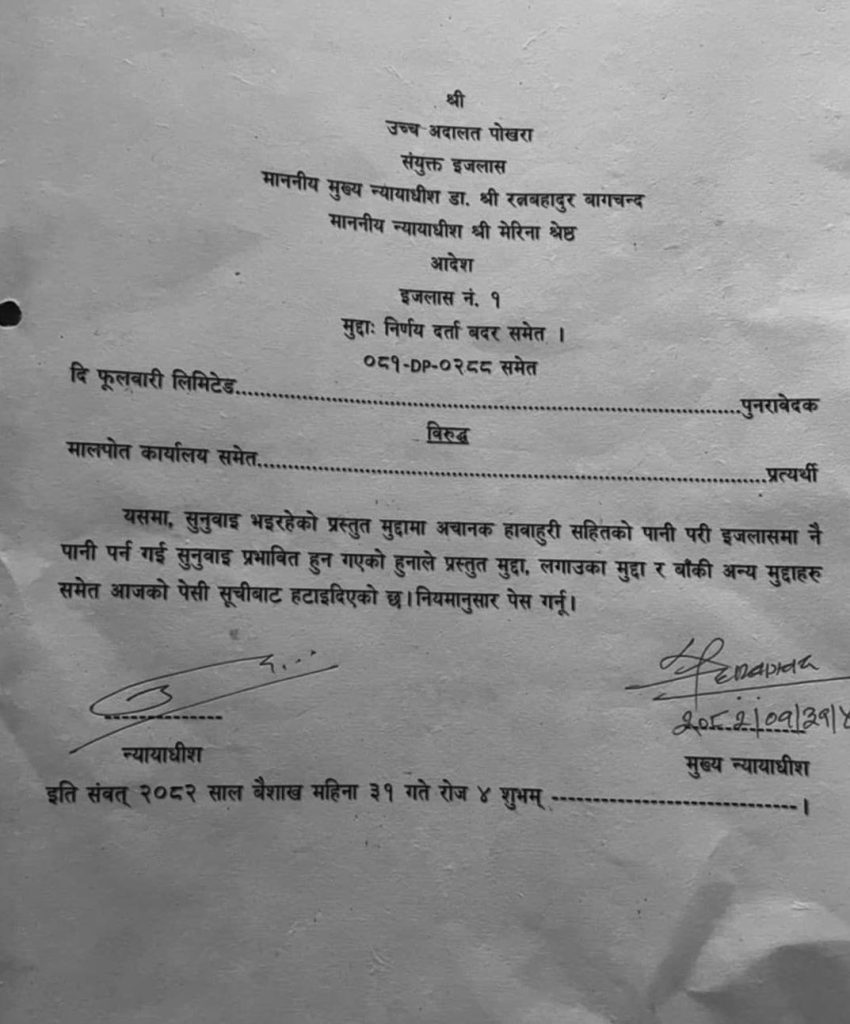 श्री
उच्च अदालत पोखरा
संयुक्त इजलास
माननीय मुख्य न्यायाधीश डा. श्री रत्नबहादुर बागचन्द
माननीय न्यायाधीश श्री मेरिना श्रेष्ठ
आदेश
इजलास नं. १
मुद्दाः निर्णय दर्ता बदर समेत ।
०८१-DP-०२८८ समेत
दि फूलबारी लिमिटेड....................पुनरावेदक
विरुद्ध
मालपोत कार्यालय समेत....................प्रत्यर्थी
यसमा, सुनुवाइ भइरहेको प्रस्तुत मुद्दामा अचानक हावाहुरी सहितको पानी परी इजलासमा नै
पानी पर्न गई सुनुवाइ प्रभावित हुन गएको हुनाले प्रस्तुत मुद्दा, लगाउका मुद्दा र बाँकी अन्य मुद्दाहरु
समेत आजको पेसी सूचीबाट हटाइदिएको छ।नियमानुसार पेस गर्नू।
२०८२|०१|३१|४
न्यायाधीश
मुख्य न्यायाधीश
इति संवत् २०८२ साल बैशाख महिना ३१ गते रोज ४ शुभम् ------------------------------।